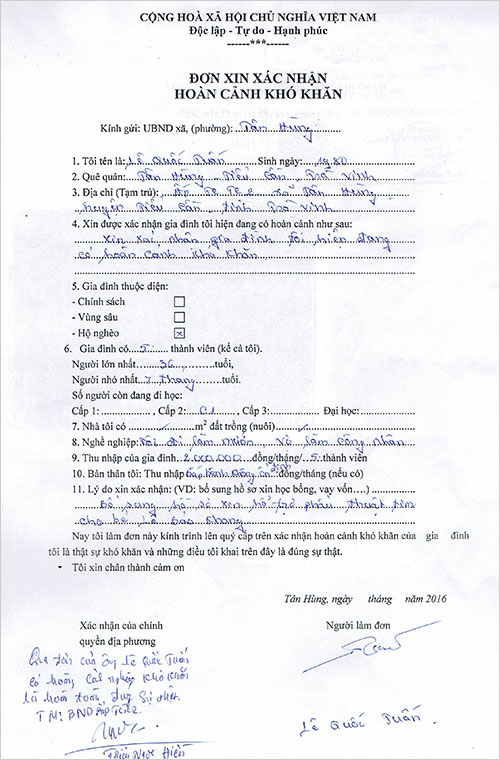 CỘNG HOÀ XÃ HỘI CHỦ NGHĨA VIỆT NAM
Độc lập - Tự do - Hạnh phúc
------***------
ĐƠN XIN XÁC NHẬN
HOÀN CẢNH KHÓ KHĂN
Kính gửi: UBND xã, (phường): Tân Hùng
1. Tôi tên là: Lê Quốc Tuấn Sinh ngày: 1980
2. Quê quán: Tân Hùng Tiểu Cần Trà Vinh
3. Địa chỉ (Tạm trú): Ấp Te Te 2 xã Tân Hùng
huyện Tiểu Cần, tỉnh Trà Vinh
4. Xin được xác nhận gia đình tôi hiện đang có hoàn cảnh như sau:
Xin xác nhận gia đình tôi hiện đang
có hoàn cảnh khó khăn
5. Gia đình thuộc diện:
- Chính sách
- Vùng sâu
- Hộ nghèo x
6. Gia đình có 5 thành viên (kể cả tôi).
Người lớn nhất 36 tuổi,
Người nhỏ nhất 7 tháng tuổi.
Số người còn đang đi học:
Cấp 1: , Cấp 2: 01 , Cấp 3: Đại học:
7. Nhà tôi có / m² đất trồng (nuôi) /
8. Nghề nghiệp: Tôi đi làm mướn, Vợ làm công nhân
9. Thu nhập của gia đình 2.000.000 đồng/tháng/ 5 thành viên
10. Bản thân tôi: Thu nhập không ổn định đồng/tháng (nếu có)
11. Lý do xin xác nhận: (VD: bổ sung hồ sơ xin học bổng, vay vốn….)
Bổ sung hồ sơ xin hỗ trợ phẩu thuật tim
cho bé Lê Bảo Khang
Nay tôi làm đơn này kính trình lên quý cấp trên xác nhận hoàn cảnh khó khăn của gia đình
tôi là thật sự khó khăn và những điều tôi khai trên đây là đúng sự thật.
- Tôi xin chân thành cảm ơn
Tân Hùng, ngày tháng năm 2016
Xác nhận của chính
quyền địa phương
Người làm đơn
Gia đình của ông Lê Quốc Tuấn
có hoàn cảnh khó khăn
là hoàn toàn đúng sự thật.
TM: BND ấp Te Te 2
Lê Quốc Tuấn